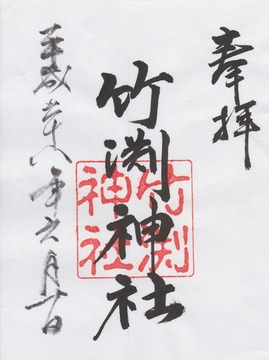 奉拝
竹渕神社
竹渕
神社
平成二十八年六月廿日